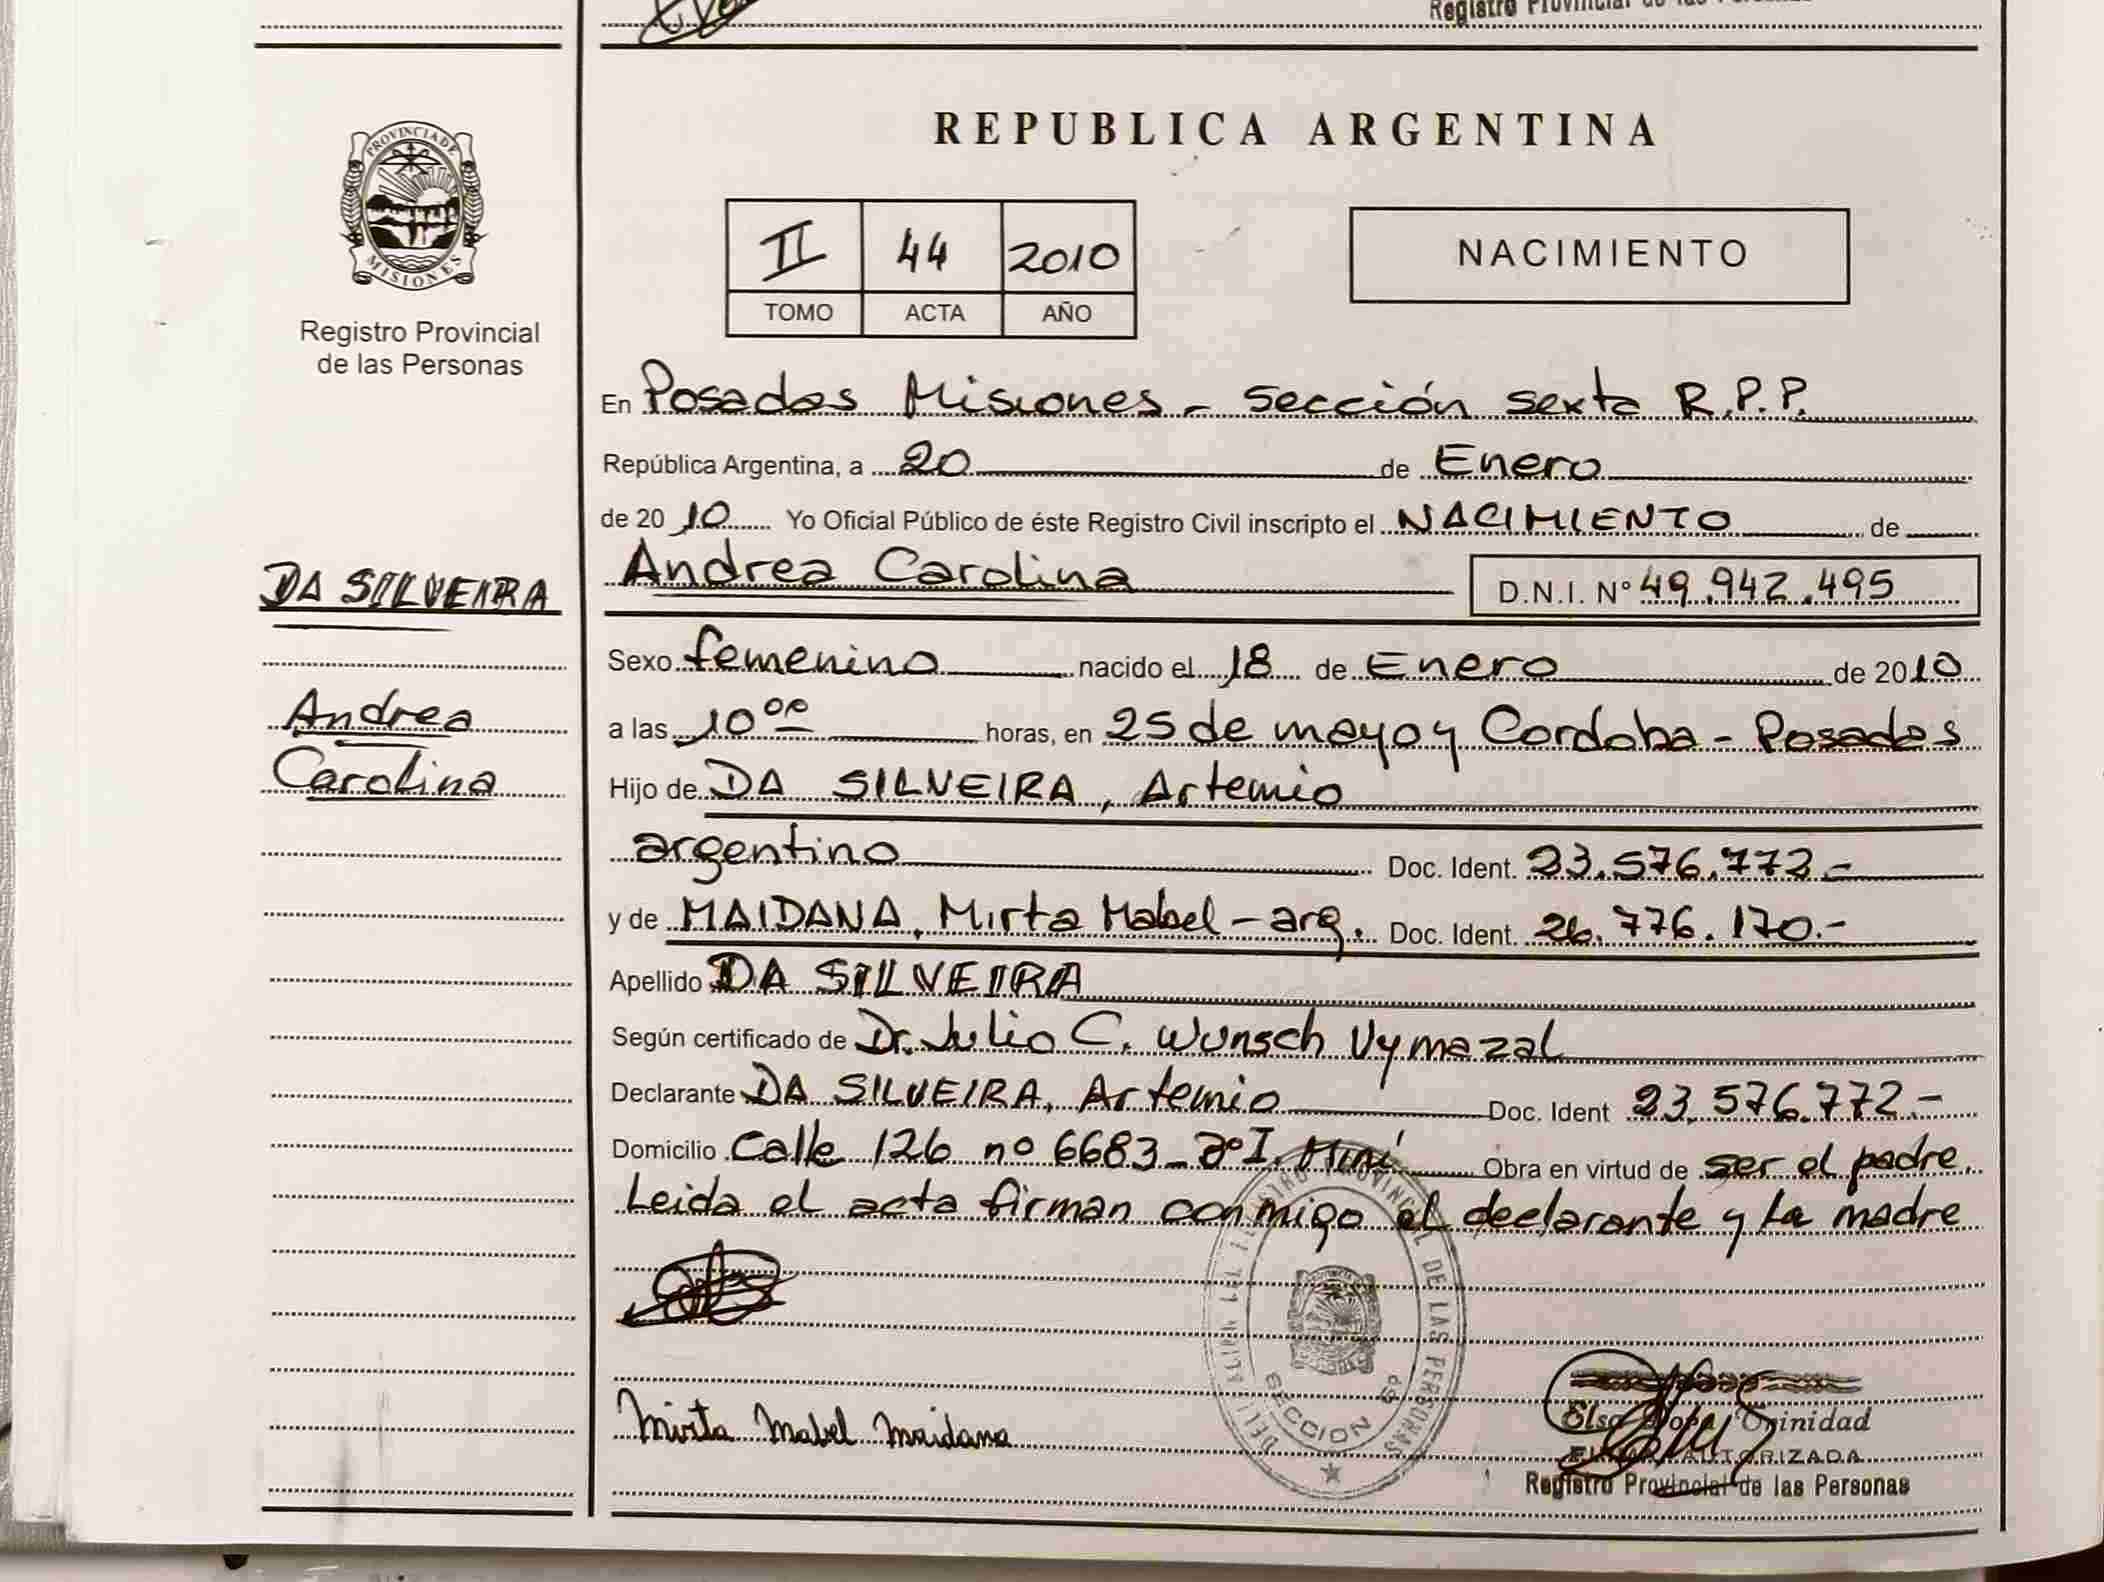 Registro Provincial de las Personas
PROVINCIA DE
MISIONES
Registro Provincial
de las Personas
DA SILVEIRA
Andrea
Carolina
REPUBLICA ARGENTINA
II 44 2010
TOMO ACTA AÑO
NACIMIENTO
En Posadas Misiones - Sección sexta R.P.P.
República Argentina, a 20 de Enero
de 2010 Yo Oficial Público de éste Registro Civil inscripto el NACIMIENTO de
Andrea Carolina D.N.I. Nº 49.942.495
Sexo femenino nacido el 18 de Enero de 2010
a las 10 horas, en 25 de mayo y Cordoba - Posadas
Hijo de DA SILVEIRA, Artemio
argentino Doc. Ident. 23.576.772.-
y de MAIDANA, Mirta Mabel - arg. Doc. Ident. 26.776.170.-
Apellido DA SILVEIRA
Según certificado de Dr. Julio C. Wunsch Vymazal
Declarante DA SILVEIRA, Artemio Doc. Ident 23.576.772.-
Domicilio Calle 126 nº 6683 - I. Miní Obra en virtud de ser el padre.
Leida el acta firman conmigo el declarante y la madre
Mirta Mabel Maidana
REGISTRO PROVINCIAL DE LAS PERSONAS
SECCION 6º
Elsa Trinidad
AUTORIZADA
Registro Provincial de las Personas